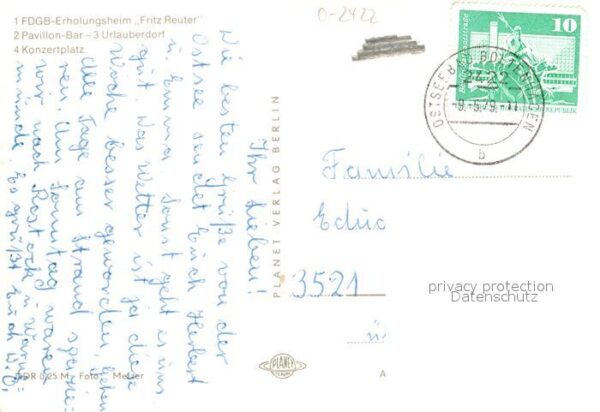 1 FDGB-Erholungsheim „Fritz Reuter"
2 Pavillon-Bar – 3 Urlauberdorf
4 Konzertplatz
0-2422
10
OSTSEEBAD BOLTENHAGEN
2422
-9.-6.79.-11
b
Ihr Lieben!
Die besten Grüße von der
Ostsee sendet Euch Herbert
u. Emma. Sonst geht es uns
gut. Das Wetter ist ja diese
Woche besser geworden, gehen
alle Tage am Strand spazie-
ren. Am Sonntag waren
wir nach Rostock u. Warne-
münde. Es grüßt Euch
PLANET VERLAG BERLIN
Familie
3521
privacy protection
Datenschutz
PLANET
DDR 0,25 M · Foto
A